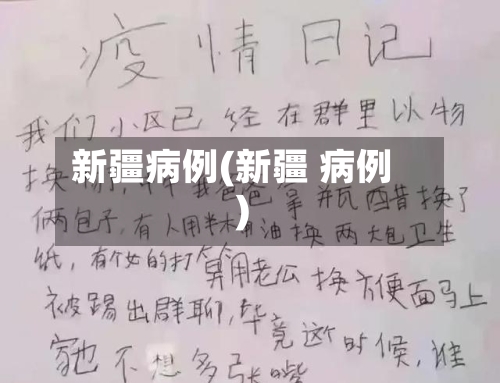 疫情日记
我们小区已经在群里以物
换物
新疆病例(新疆 病例
)
爸爸拿瓶醋换了
俩包子,有人用半 油换两大包卫生
纸,有个女的打算用老公换方便面马上
被踢出群聊,毕竟这个时候,谁
家也不想多张嘴